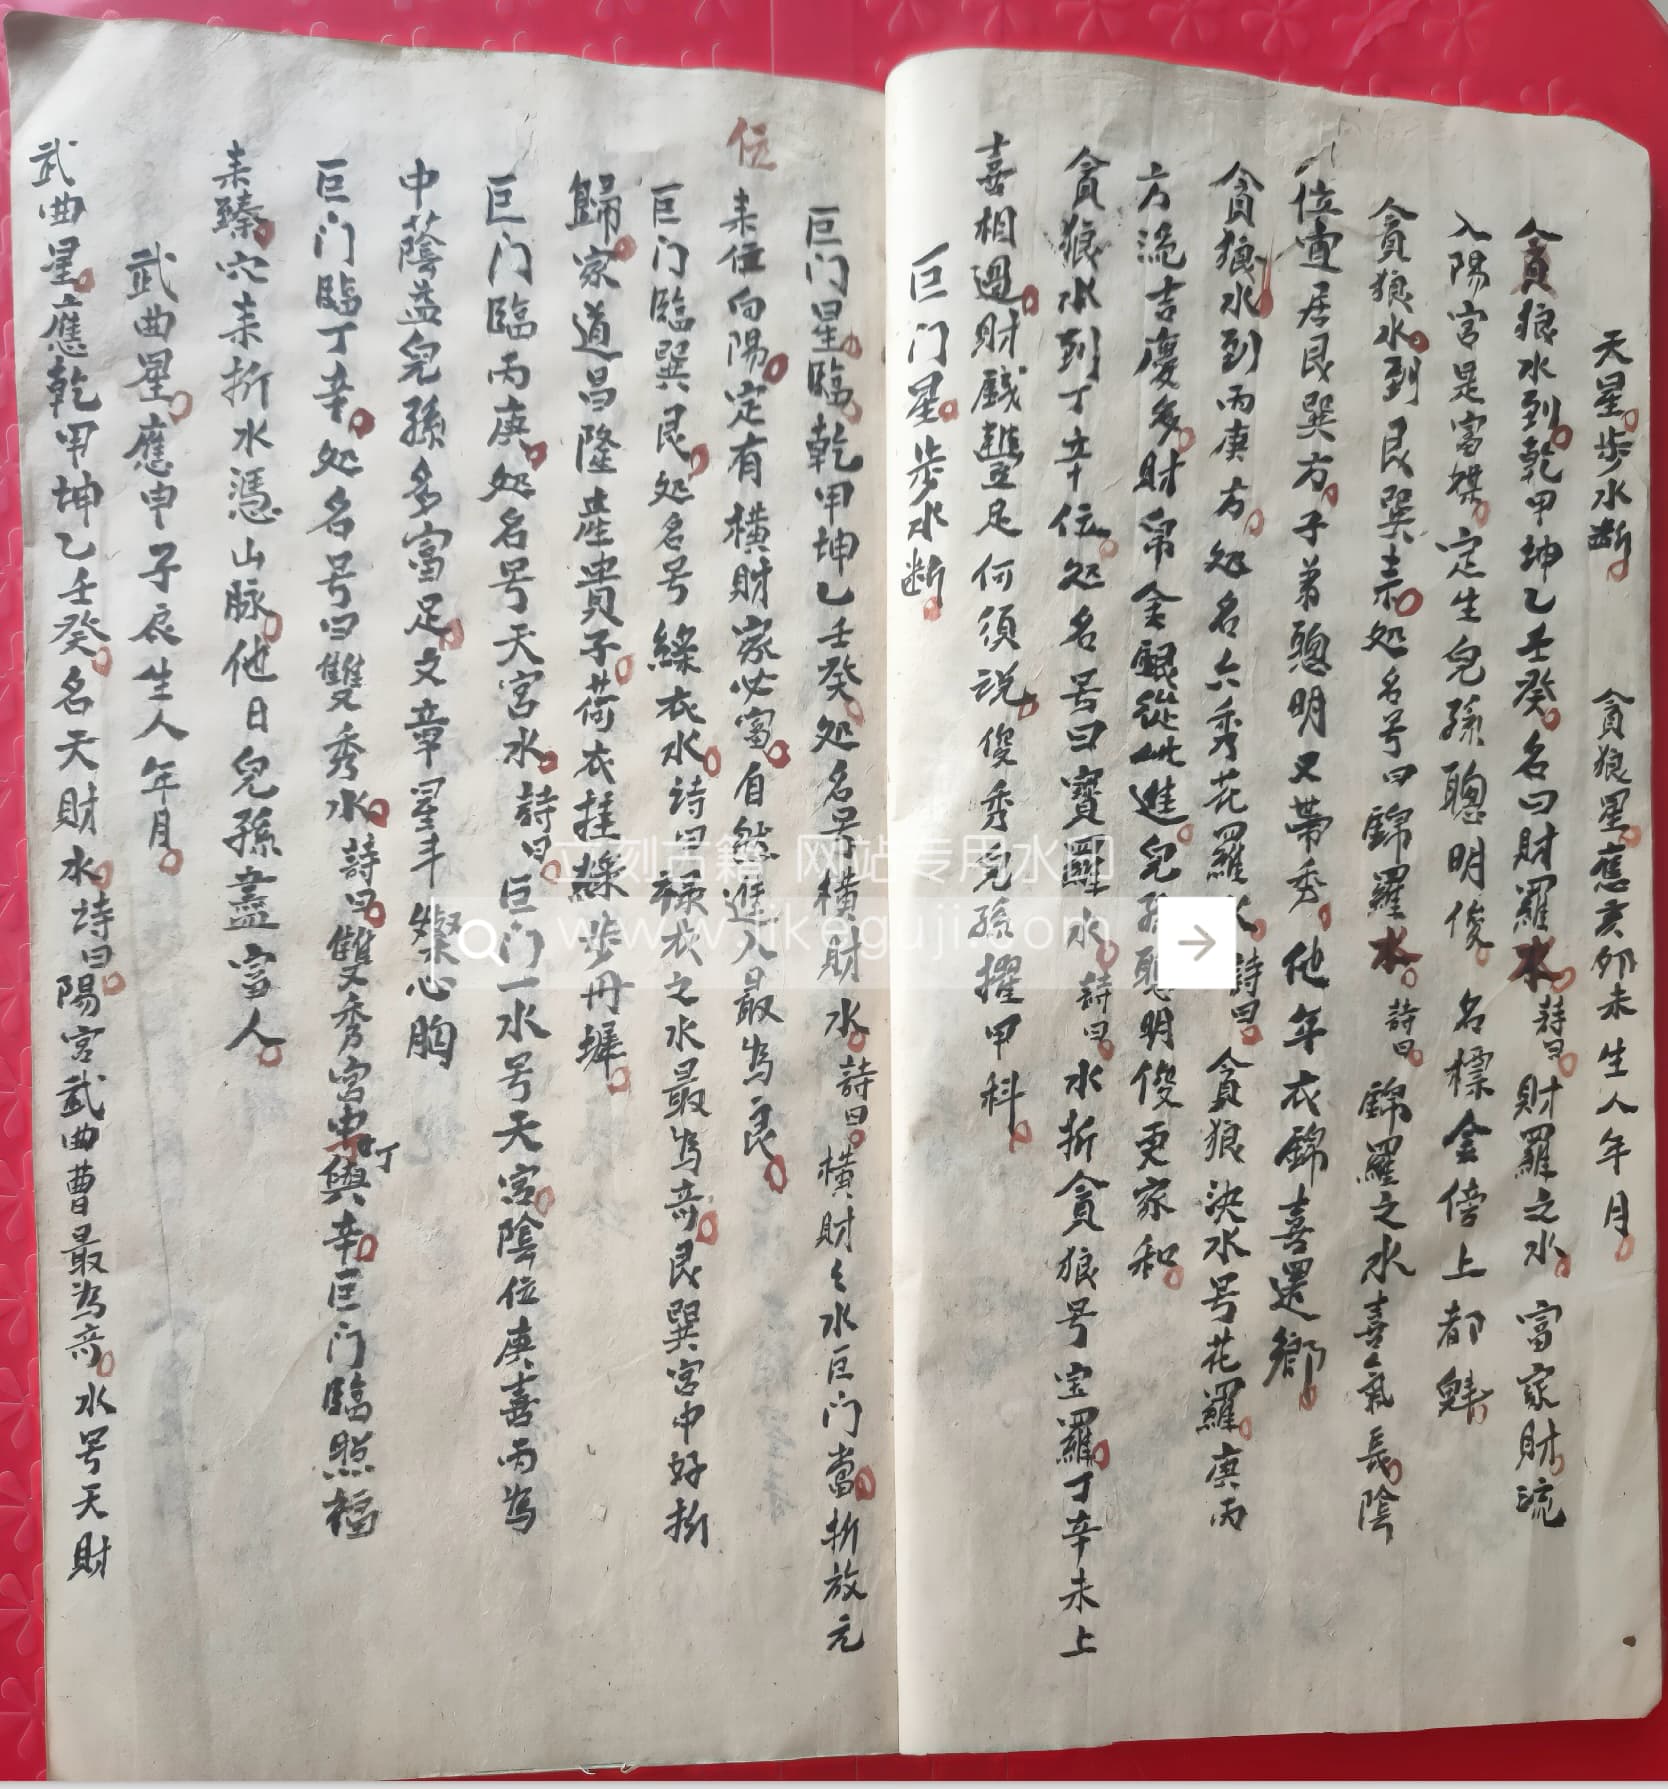 天星步水断 貪狼星應亥卯未生人年月
貪狼水到乾甲坤乙壬癸名曰財羅水詩曰財羅之水富家財流
入陽宮是富媒定生兒孫聰明俊名標金傍上都魁
貪狼水到艮巽耒处名号曰錦羅水詩曰錦羅之水喜氣長陰
位宜居艮巽方子弟聰明又帶秀他年衣錦喜還鄉
貪狼水到丙庚方处名六秀花羅水詩曰貪狼決水号花羅庚丙
方流吉慶多財帛金銀從此進兒孫聰明俊更家和
貪狼水到丁辛位处名号曰寶羅水詩曰水折貪狼号宝羅丁辛未上
喜相過財錢豐足何須说俊秀兒孫擢甲科
巨门星步水断
巨门星臨乾甲坤乙壬癸处名号橫財水詩曰橫財之水巨门當折放元
位
耒位向陽定有橫財家必富自然進入最為良
巨门臨巽艮处名号綠衣水诗曰祿衣之水最為奇艮巽宮中好折
歸家道昌隆產貴子荷衣挂綠步丹墀
巨门臨丙庚处名号天宮水詩曰巨门一水号天宮陰位庚喜丙為
中蔭益兒孫多富足文章星斗燦心胸
巨门臨丁辛处名号曰雙秀水詩曰雙秀宮中丁與辛巨门臨照福
耒臻穴耒折水憑山脉他日兒孫盡富人
武曲星應申子辰生人年月
武曲星應乾甲坤乙壬癸名天財水诗曰陽宮武曲曹最為奇水号天財
立刻古籍 网站专用水印
www.likeguji.com